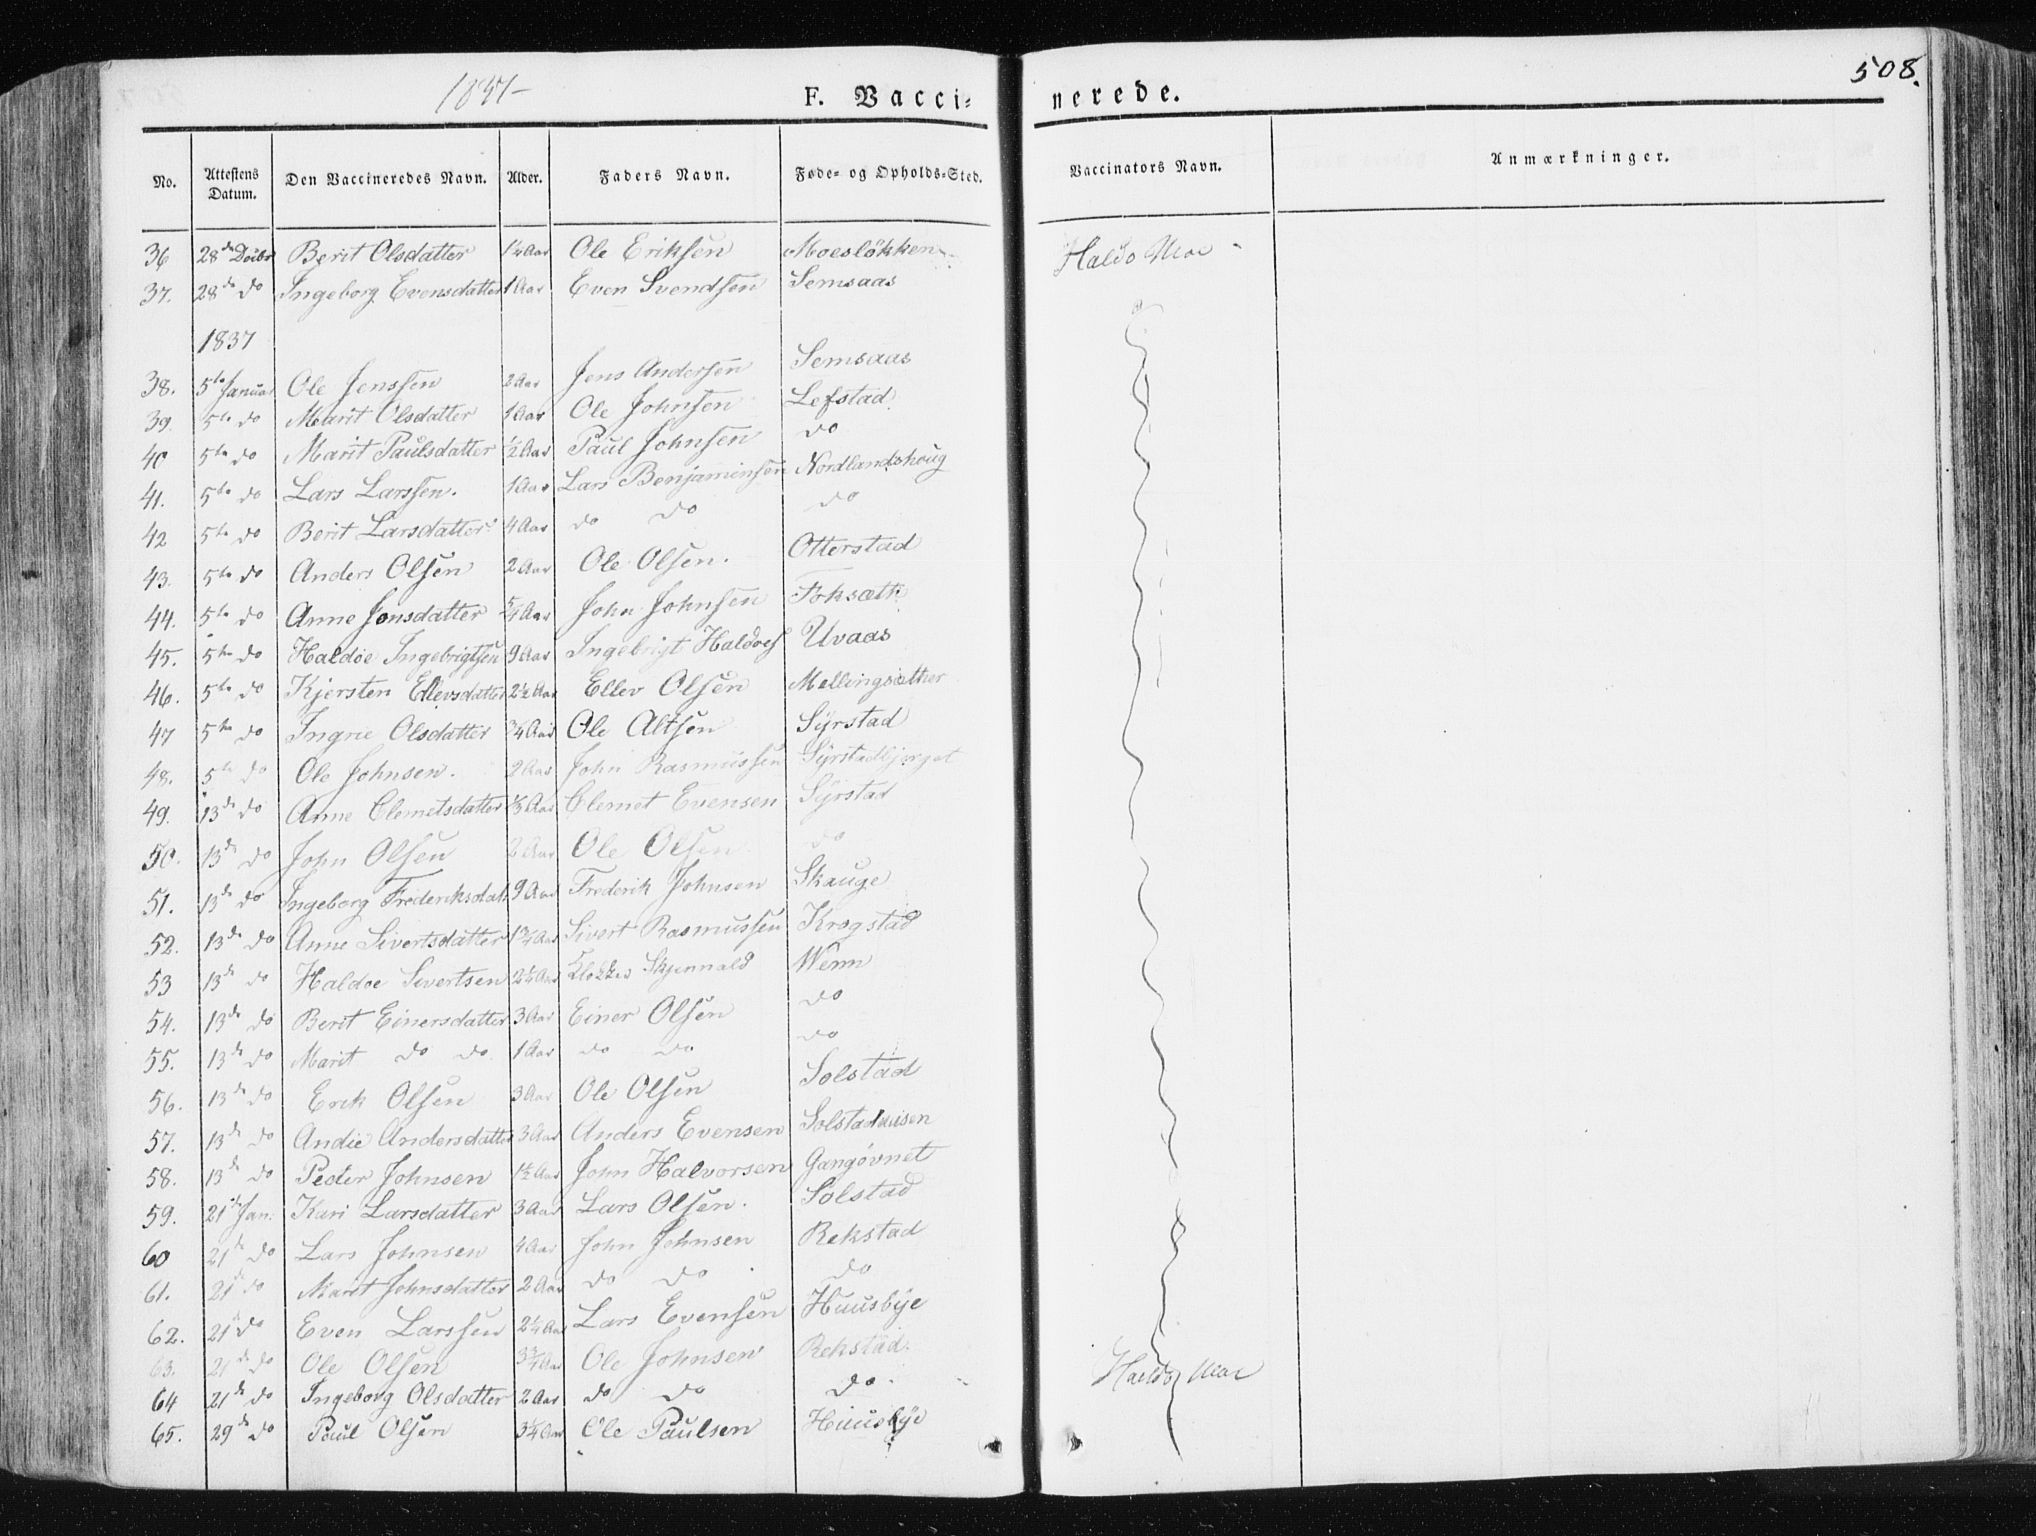 508.
F. Vacci- nerede.
No. Attestens Datum. Den Vaccineredes Navn. Alder. Faders Navn. Føde- og Opholds-Sted. Vaccinators Navn. Anmærkninger.
36 28de Decbr Berit Olsdatter 1¼ Aar Ole Eriksen Moesløkken Haldo Moe
37. 28de do Ingeborg Evensdatter 1 Aar Even Svendsen Semsaas
1837
38. 5te Januar Ole Jenssen 2 Aar Jens Andersen Semsaas
39. 5te do Marit Olsdatter 1 Aar Ole Johnsen Lefstad
40 5te do Marit Paulsdatter ½ Aar Paul Johnsen do
41. 5te do Lars Larssen. 1 Aar Lars Benjaminsen Nordlandshoug
42 5te do Berit Larsdatter 4 Aar do do do
43. 5te do Anders Olsen 2 Aar Ole Olsen. Otterstad
44. 5te do Anne Jonsdatter 5/4 Aar John Johnsen Foksæth
45. 5te do Haldoe Ingebrigtsen 9 Aar Ingebrigt Haldoes Uvaas
46. 5te do Kjersten Ellevsdatter 2½ Aar Ellev Olsen Mellingsæther
47 5te do Ingrie Olsdatter ¾ Aar Ole Altsen Syrstad
48. 5te do Ole Johnsen. 2 Aar John Rasmussen Syrstadbjerget
49. 13de do Anne Clemetsdatter Aar Clemet Evensen Syrstad
50. 13de do John Olsen 2 Aar Ole Olsen do
51. 13de do Ingeborg Frederiksdatt 9 Aar Frederik Johnsen Skauge
52. 13de do Anne Sivertsdatter 1¾ Aar Sivert Rasmussen Krogstad
53 13de do Haldoe Sivertsen 2¼ Aar Klokker Skjennald Wenn
54. 13de do Berit Einersdatter 3 Aar Einer Olsen do
55. 13de do Marit do do 1 Aar do do do
56. 13de do Erik Olsen 3 Aar Ole Olsen Solstad
57. 13de do Andie Andersdatter 3 Aar Anders Evensen
58. 13de do Peder Johnsen 1½ Aar John Halvorsen Gangøvnet
59. 21de Jan. Kari Larsdatter 3 Aar Lars Olsen. Solstad
60 21de do Lars Johnsen 4 Aar John Johnsen Rekstad
61. 21de do Marit Johnsdatter 2 Aar do do do
62. 21de do Even Larssen 2¼ Aar Lars Evensen Huusbye
63. 21de do Ole Olsen 3¾ Aar Ole Johnsen Rekstad. Haldo Moe
64 21de do Ingeborg Olsdatter 2 Aar do do do
65. 29de do Paul Olsen 3¼ Aar Ole Paulsen Huusbye